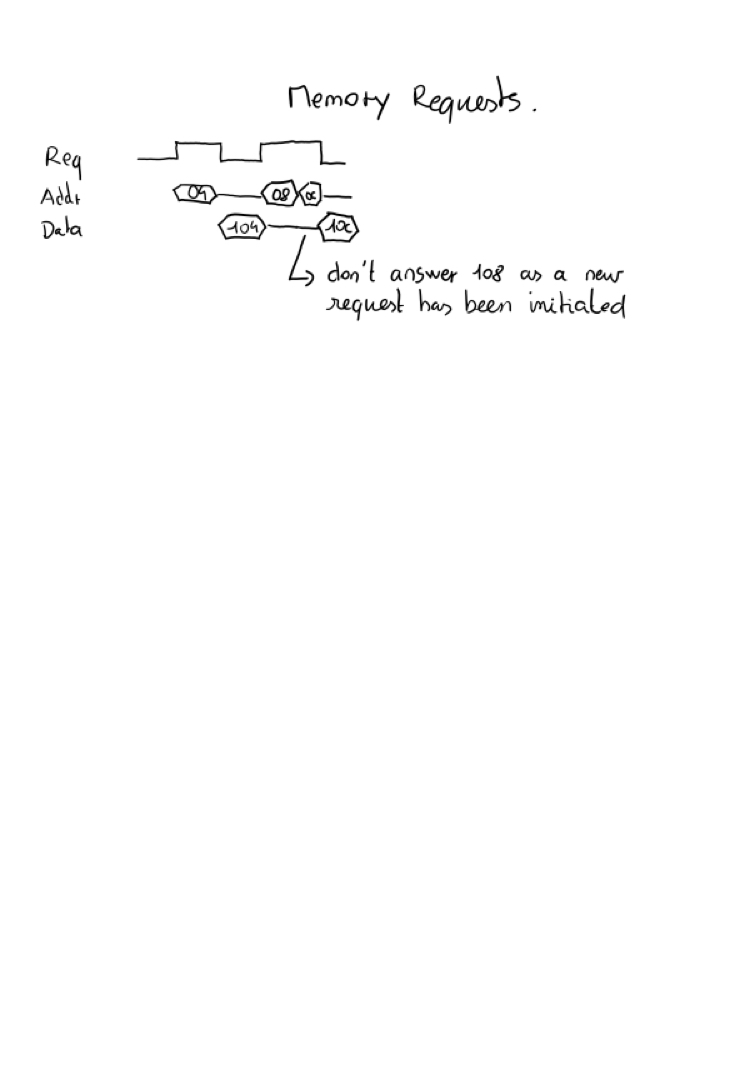 Memory Requests.
Req
Addr 04 08 0c
Data 104 10c
don't answer 108 as a new
request has been initiated